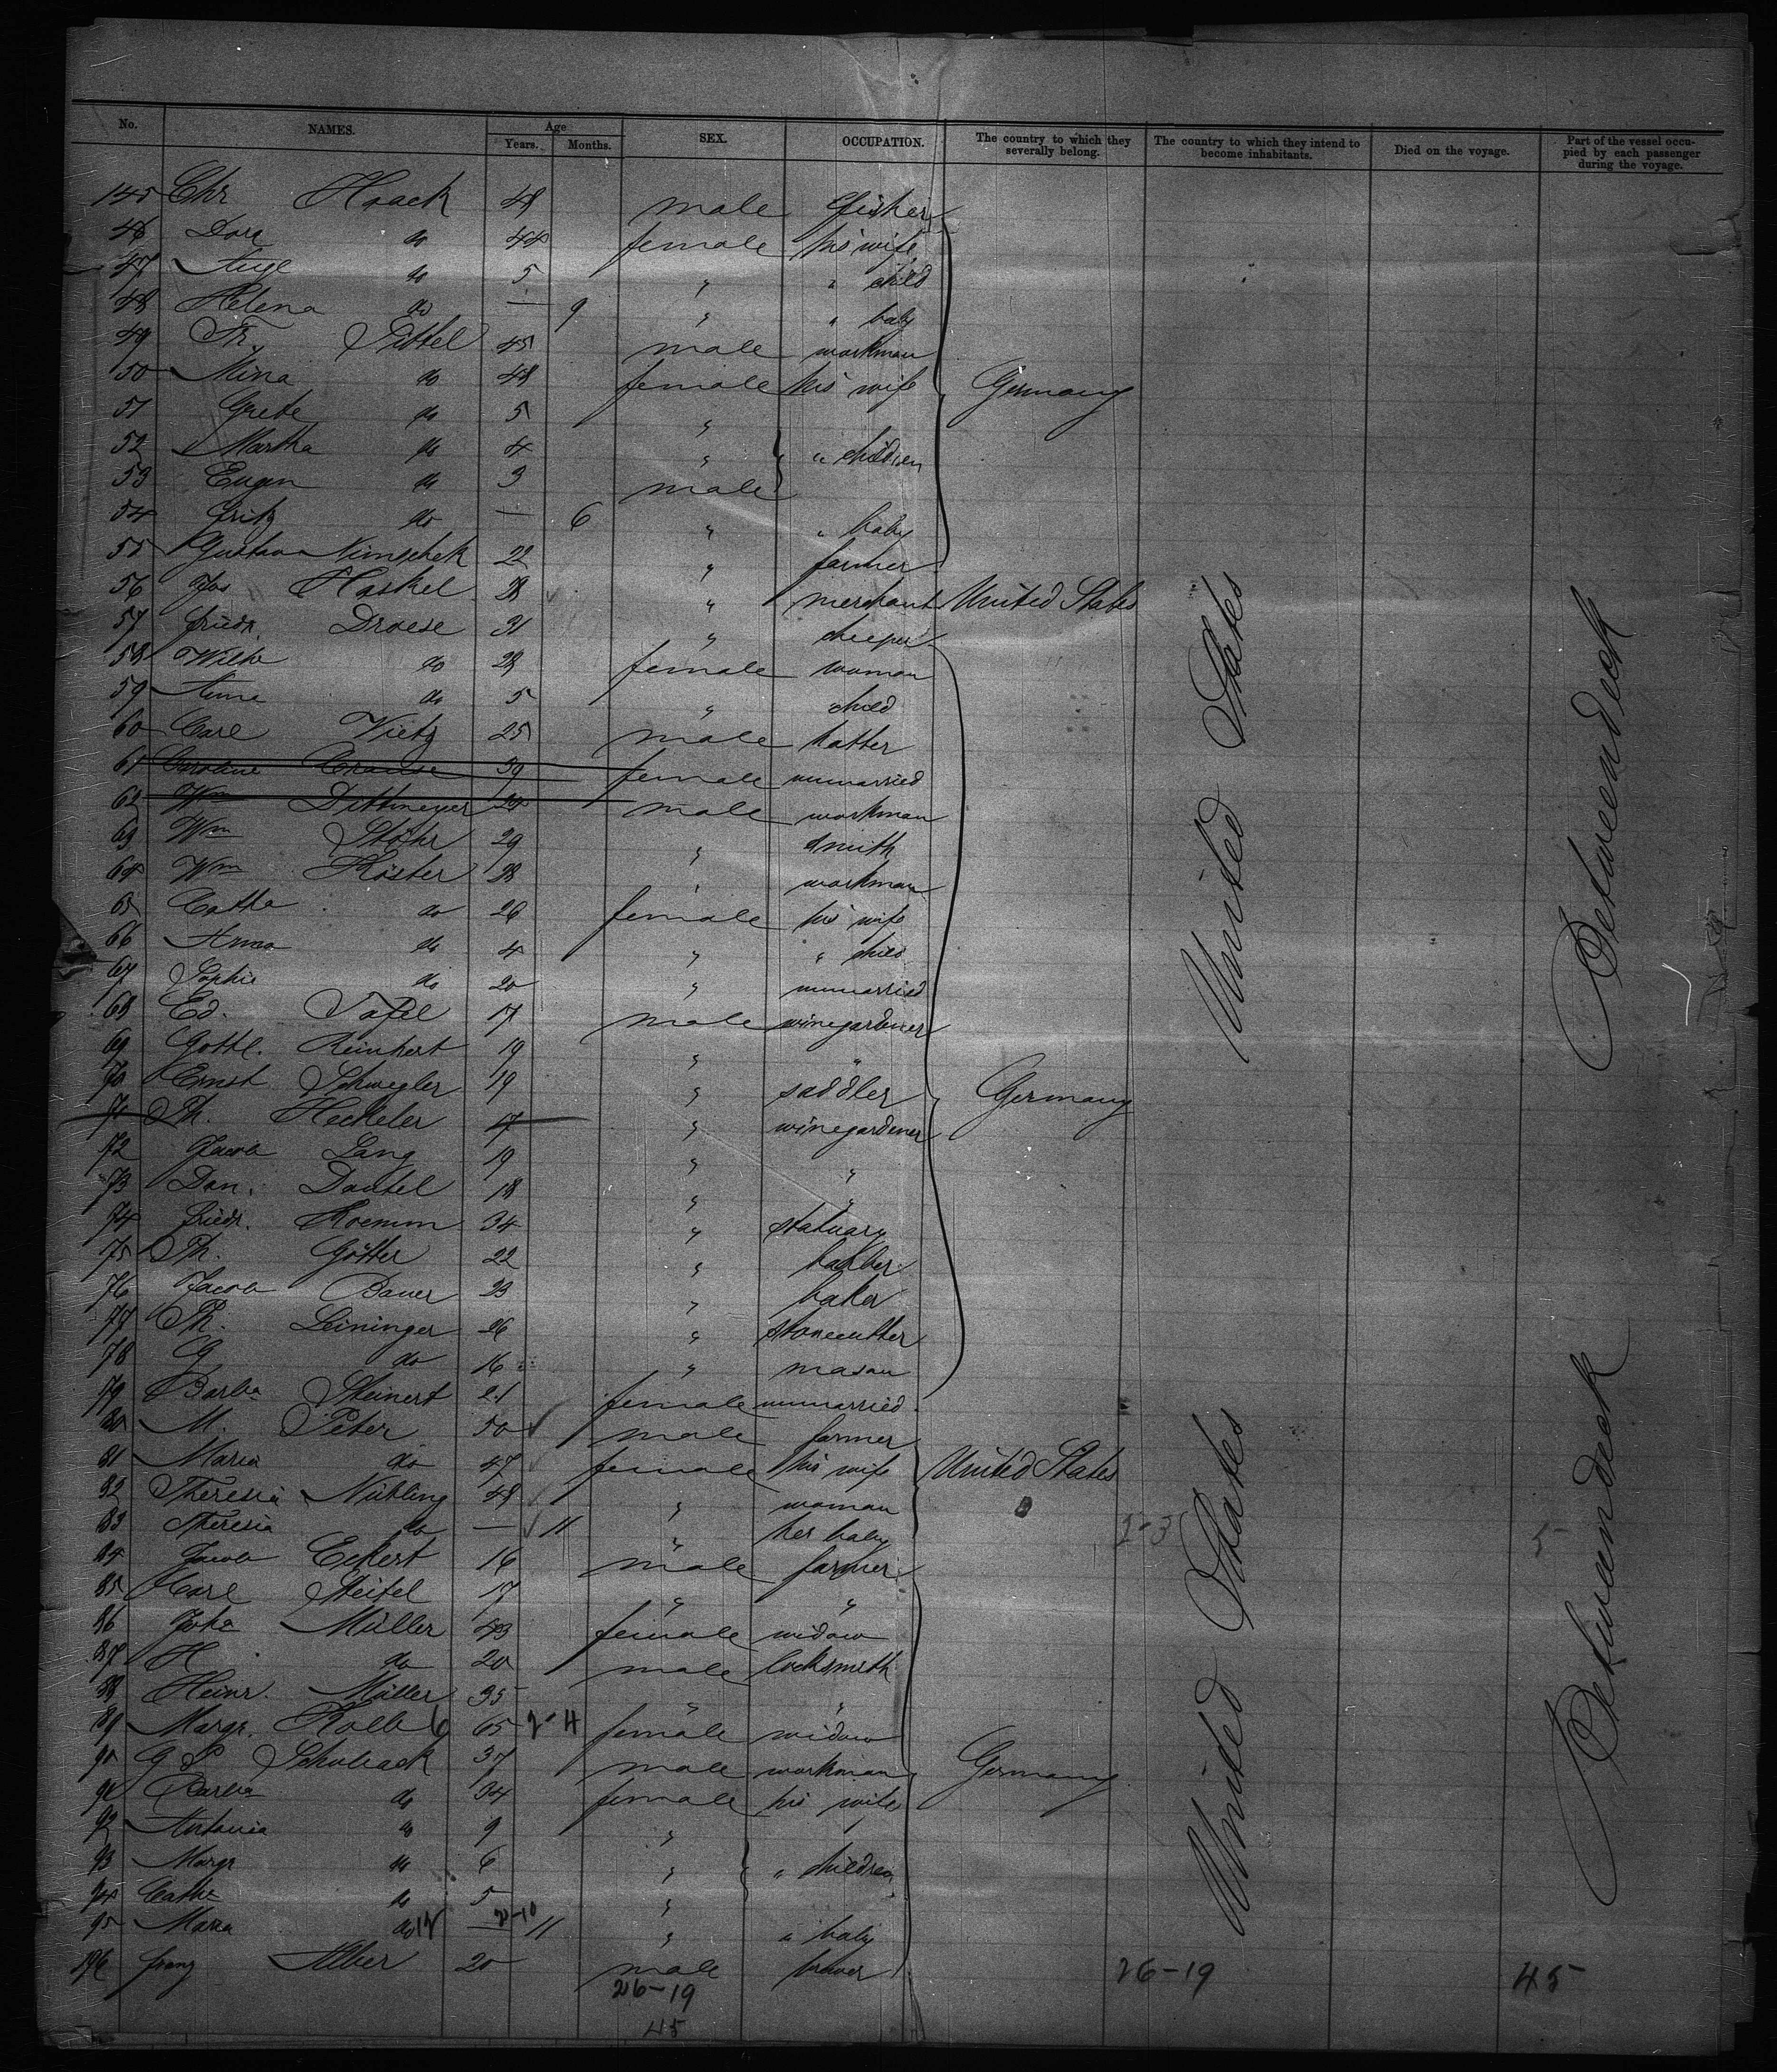 No. NAMES. Age Years. Months. SEX. OCCUPATION. The country to which they severally belong. The country to which they intend to become inhabitants. Died on the voyage. Part of the vessel occupied by each passenger during the voyage.
145 Chr Haack 48 male fisher
46 Dora do 44 female his wife
47 do 5 " " child
48 Helena do — 9 " " baby
49 Fr. Sittel 45 male workman
50 Mina do 48 female his wife Germany
51 Grete do 5 "
52 Martha do 4 " " children
53 Eugen do 3 male
54 Fritz do — 6 " " baby
55 Gustav Nimschek 22 " farmer
56 Jos Haskel 28 " merchant United States
57 Friedr. Droese 31 "
58 Wilhe do 28 female woman
59 Anna do 5 " child
60 Carl Vietz 25 male hatter
61 Caroline Krause 59 female unmarried
62 Wm Dittmeyer 24 male workman
63 Wm Stöhr 29 " smith
64 Wm Köster 28 " workman
65 Cathe do 26 female his wife
66 Anna do 4 " " child
67 Sophie do 20 " unmarried
68 Ed. Tafel 17 male winegardener
69 Gottl. Reinhert 19 " "
70 Ernst Schwegler 19 " saddler Germany
71 Th. Heckeler 17 " winegardener
72 Jacob Lang 19 " "
73 Dan. Dautel 18 " "
74 Friedr. Koemm 34 " statuary
75 Th. Götter 22 " barber
76 Jacob Bauer 23 " baker
77 Th. Leininger 26 " stonecutter
78 G do 16 " mason
79 Barba Steinert 21 female unmarried
80 M. Peter 50 male farmer
81 Maria do 47 female his wife United States
82 Theresia Nübling 48 " woman
83 Theresia do — 11 " her baby 2-3 5
84 Jacob Eckert 16 male farmer
85 Carl Steifel 17 " "
86 Joha Müller 43 female widow
87 H do 20 male locksmith
88 Heinr. Müller 35 " "
89 Margr. Kolb 6 65 2-4 female widow
90 G S Schuback 37 male workman Germany
91 Barba do 34 female his wife
92 Antonia do 9 "
93 Margr do 6 " " children
94 Cathe do 5 "
95 Maria do 12 — 2-10 11 " " baby
196 Franz Alber 20 male brewer 26-19 45
26-19
45
United States
Betweendeck
United States
Betweendeck